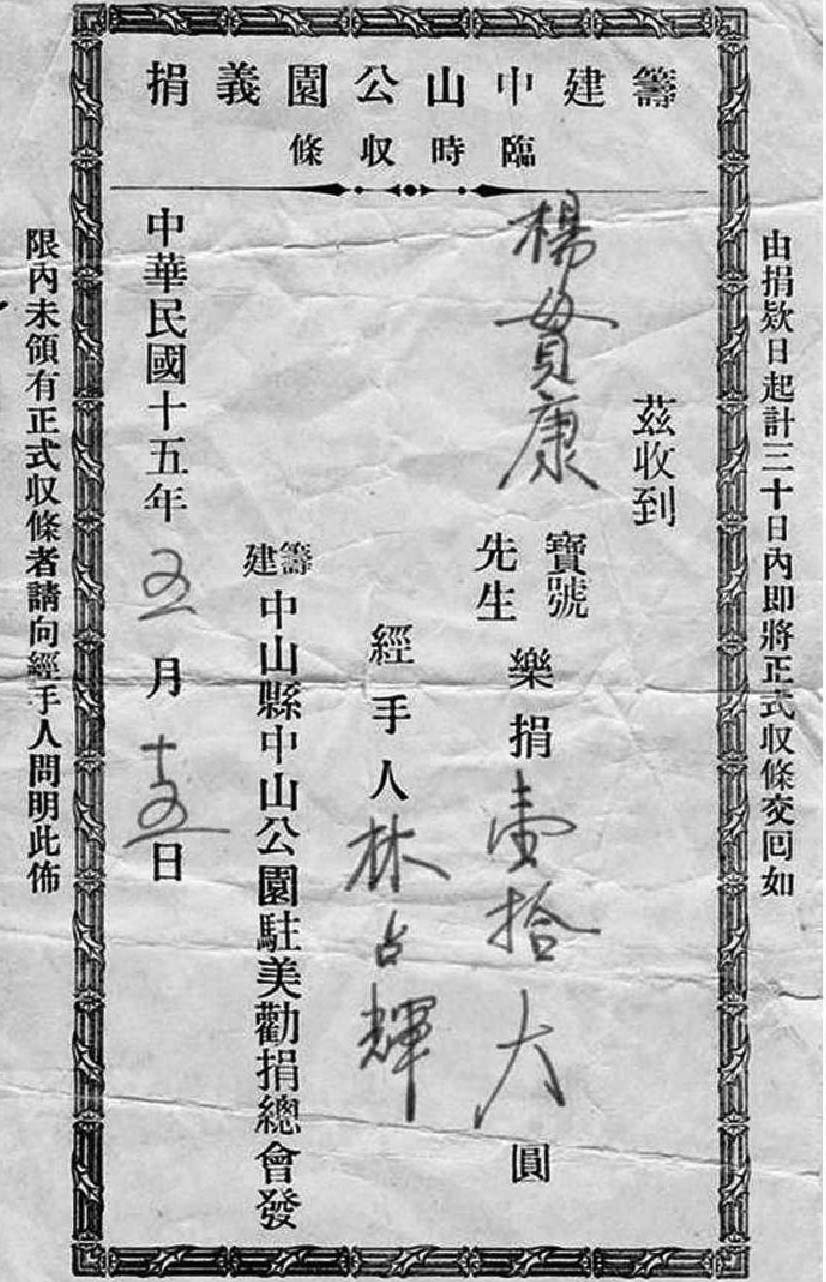 籌建中山公園義捐
臨時收條
由捐欵日起計三十日內即將正式収條交回如
茲收到
楊貫康
寶號
先生
樂捐壹拾大圓
經手人林占輝
籌建中山縣中山公園駐美勸捐總會發
中華民國十五年五月十五日
限內未領有正式収條者請向經手人問明此佈